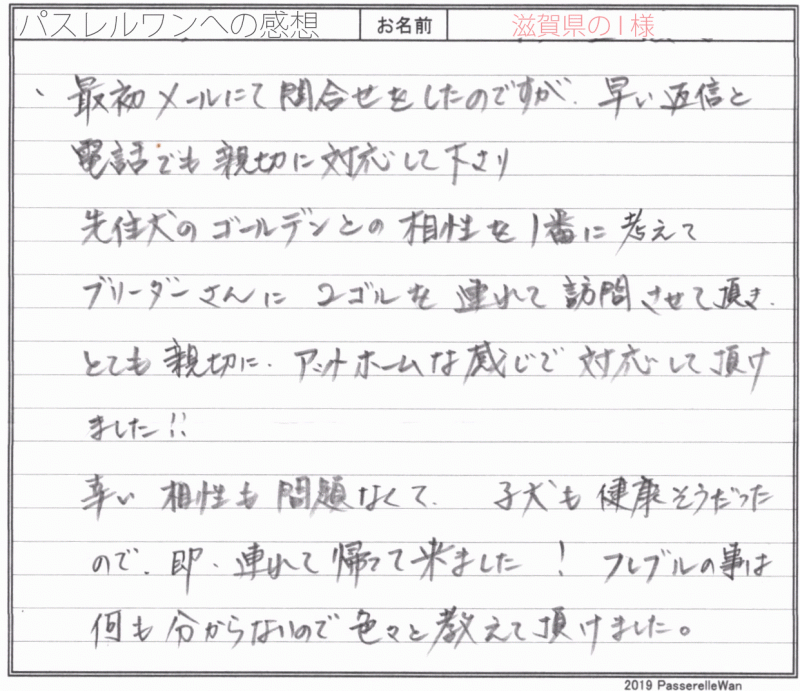 パスレルワンへの感想 お名前 滋賀県のI様
、最初メールにて問合せをしたのですが、早い返信と
電話でも親切に対応して下さり
先住犬のゴールデンとの相性を1番に考えて
ブリーダーさんに2ゴルを連れて訪問させて頂き、
とても親切に、アットホームな感じで対応して頂け
ました!!
幸い相性も問題なくて、子犬も健康そうだった
ので、即、連れて帰って来ました!フレブルの事は
何も分からないので色々と教えて頂けました。
2019 PasserelleWan